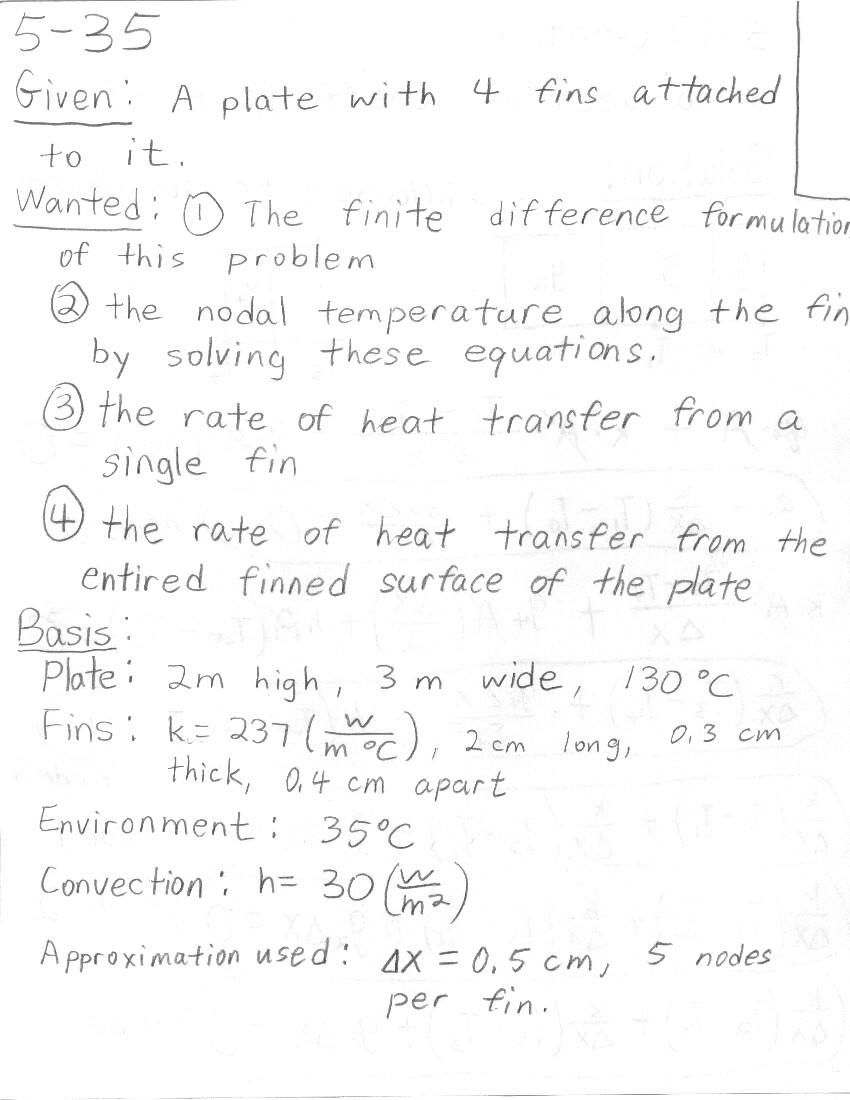 5-35
Given: A plate with 4 fins attached
to it.
Wanted: ① The finite difference formulation
of this problem
② the nodal temperature along the fin
by solving these equations.
③ the rate of heat transfer from a
single fin
④ the rate of heat transfer from the
entired finned surface of the plate
Basis:
Plate: 2m high, 3 m wide, 130 °C
Fins: k= 237 (W/m °C), 2 cm long, 0.3 cm
thick, 0.4 cm apart
Environment: 35°C
Convection: h= 30 (W/m²)
Approximation used: ΔX = 0.5 cm, 5 nodes
per fin.